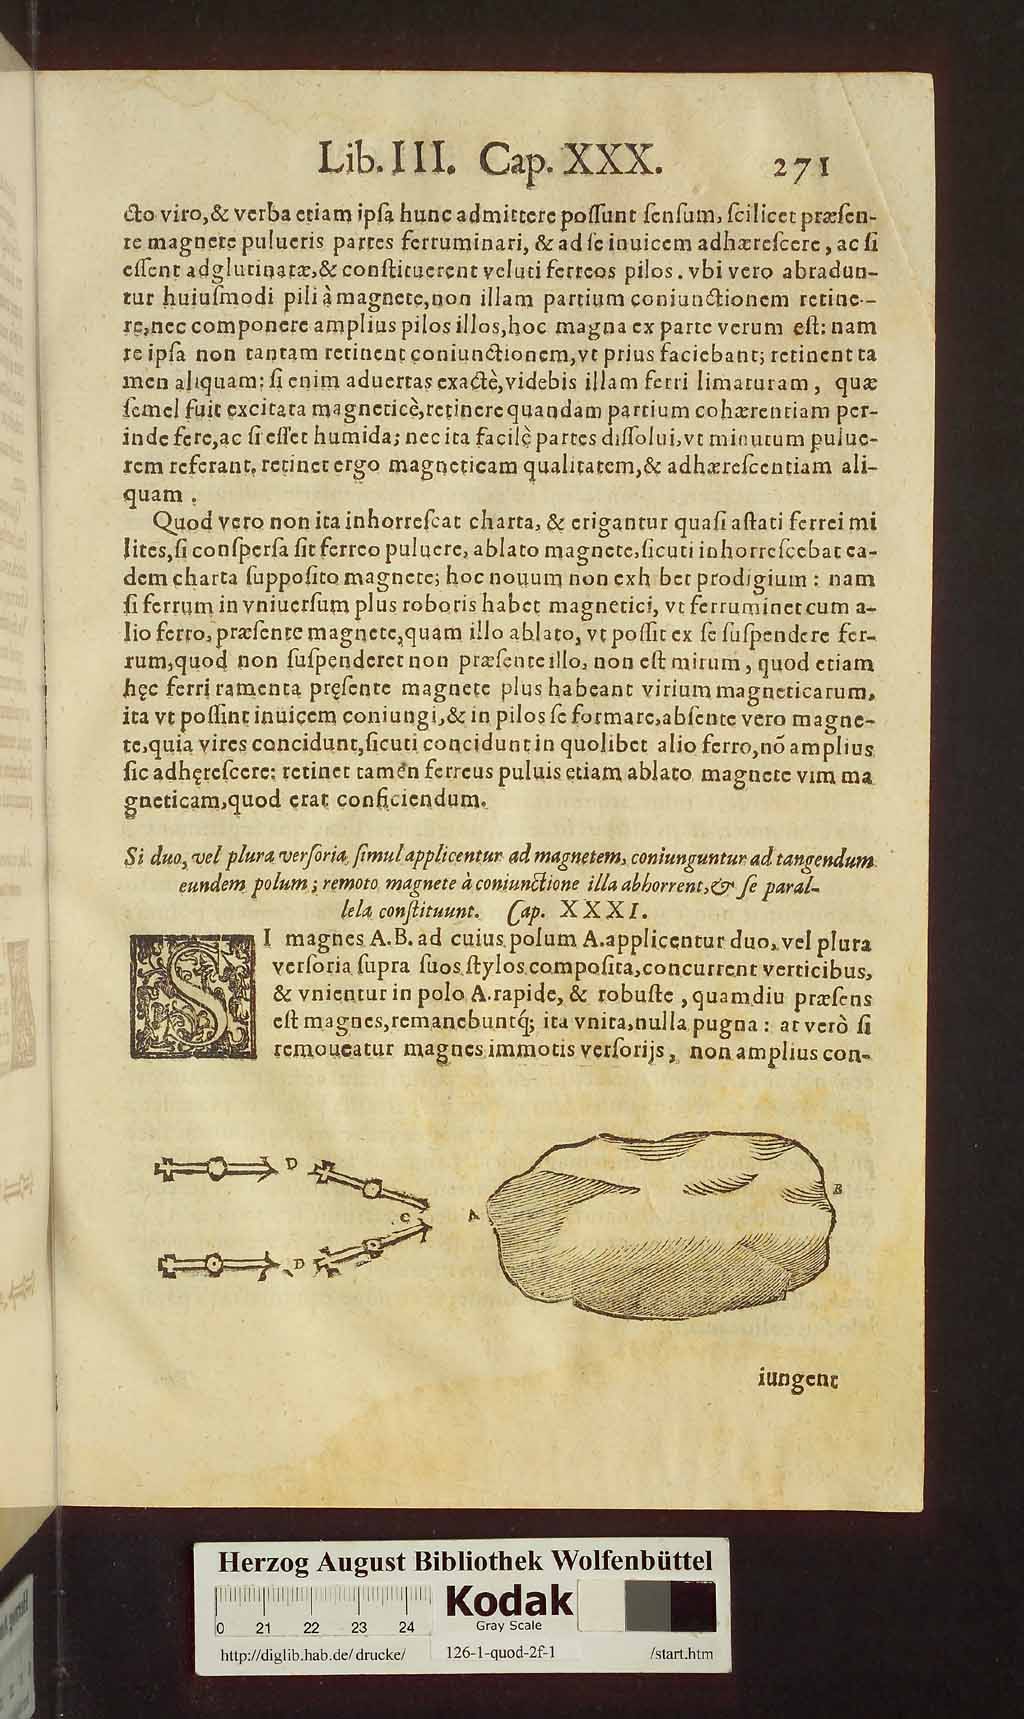 Lib. III. Cap. XXX. 271
cto viro,& verba etiam ipſa hunc admittere poſſunt ſenſum, ſcilicet præſen-
te magnete pulueris partes ferruminari, & ad ſe inuicem adhæreſcere, ac ſi
eſſent adglutinatæ,& conſtituerent veluti ferreos pilos. vbi vero abradun-
tur huiuſmodi pili à magnete,non illam partium coniunctionem retine-
re,nec componere amplius pilos illos,hoc magna ex parte verum eſt: nam
re ipſa non tantam retinent coniunctionem,vt prius faciebant; retinent ta
men aliquam: ſi enim aduertas exactè,videbis illam ferri limaturam, quæ
ſemel fuit excitata magneticè,retinere quandam partium cohærentiam per-
inde fere,ac ſi eſſet humida; nec ita facilè partes diſſolui,vt minutum pulue-
rem referant, retinet ergo magneticam qualitatem,& adhæreſcentiam ali-
quam.
Quod vero non ita inhorreſcat charta, & erigantur quaſi aſtati ferrei mi
lites,ſi conſperſa ſit ferreo puluere, ablato magnete,ſicuti inhorreſcebat ea-
dem charta ſuppoſito magnete; hoc nouum non exh bet prodigium: nam
ſi ferrum in vniuerſum plus roboris habet magnetici, vt ferruminet cum a-
lio ferro, præſente magnete,quam illo ablato, vt poſſit ex ſe ſuſpendere fer-
rum,quod non ſuſpenderet non præſente illo, non eſt mirum, quod etiam
hęc ferri ramenta pręſente magnete plus habeant virium magneticarum,
ita vt poſſint inuicem coniungi,& in pilos ſe formare,abſente vero magne-
te,quia vires concidunt,ſicuti concidunt in quolibet alio ferro,nõ amplius
ſic adhęreſcere: retinet tamen ferreus puluis etiam ablato magnete vim ma
gneticam,quod erat conficiendum.
Si duo, vel plura verſoria ſimul applicentur ad magnetem, coniunguntur ad tangendum
eundem polum; remoto magnete à coniunctione illa abhorrent,& ſe paral-
lela conſtituunt. Cap. XXXI.
SI magnes A.B. ad cuius polum A.applicentur duo, vel plura
verſoria ſupra ſuos ſtylos compoſita,concurrent verticibus,
& vnientur in polo A.rapide, & robuſte, quamdiu præſens
eſt magnes,remanebuntq́; ita vnita,nulla pugna: at verò ſi
remoueatur magnes immotis verſorijs, non amplius con-
D
C
A
B
D
iungent
Herzog August Bibliothek Wolfenbüttel
0 21 22 23 24
Kodak
Gray Scale
http://diglib.hab.de/drucke/ 126-1-quod-2f-1 /start.htm